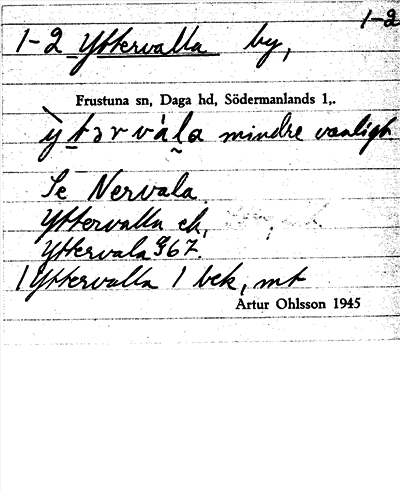 1-2
1-2 Yttervalla by,
Frustuna sn, Daga hd, Södermanlands l,.
mindre vanligt
Se Nervala
Yttervalla ek,
Yttervala
1 Yttervalla 1 bek, mt
Artur Ohlsson 1945